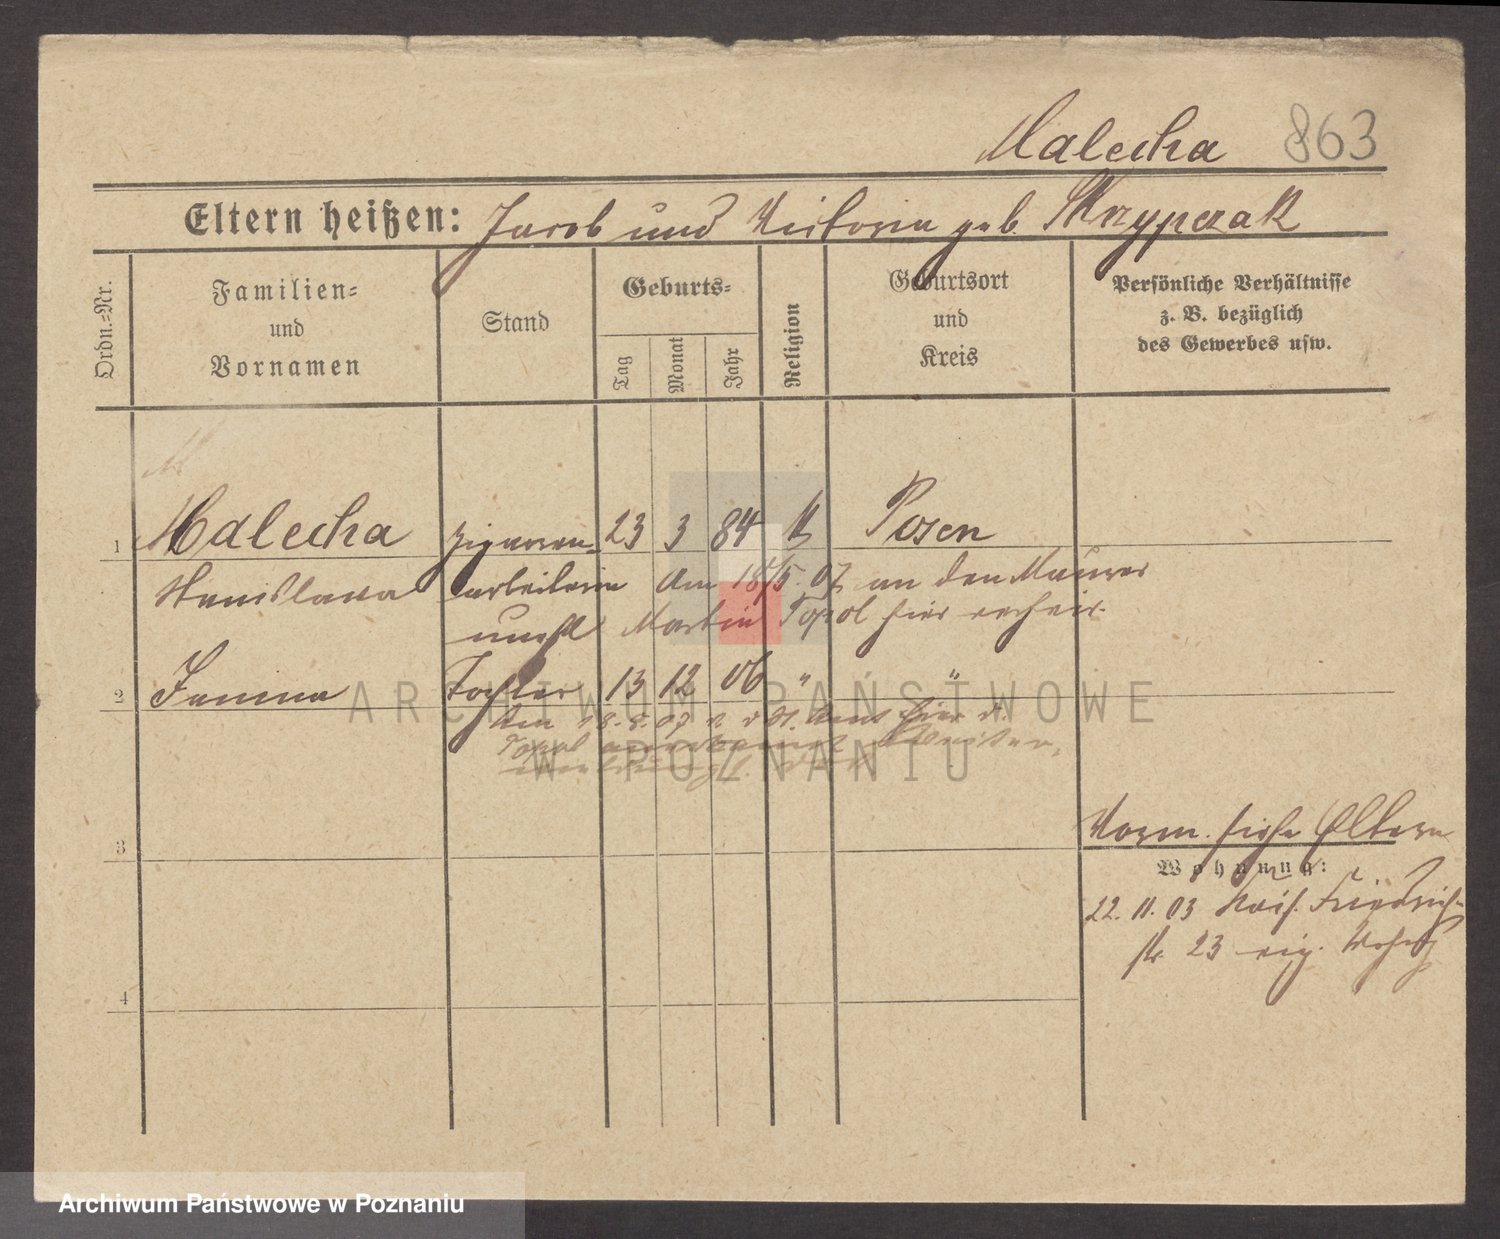 Malecha 863
Eltern heißen: Jacob und Victoria geb. Skrzypczak
Ordn.=Nr.
Familien=
und
Vornamen
Stand
Geburts=
Tag
Monat
Jahr
Religion
Geburtsort
und
Kreis
Persönliche Verhältnisse
z. B. bezüglich
des Gewerbes usw.
1 Malecha Zigarren- 23 3 84 k Posen
Stanislawa arbeiterin Am 18/5. 07 an den Maurer
unehl Martin Topol hier verheir.
2 Janina Tochter 13 12 06 " "
Am 18.5.07 v. d. St. Amt hier d.
Topol anerkannt
3
Vorm. siehe Eltern
Wohnung:
22. 11. 03 Kais. Friedrich-
str 23 eig. Wohng
4
ARCHIWUM PAŃSTWOWE
W POZNANIU
Archiwum Państwowe w Poznaniu